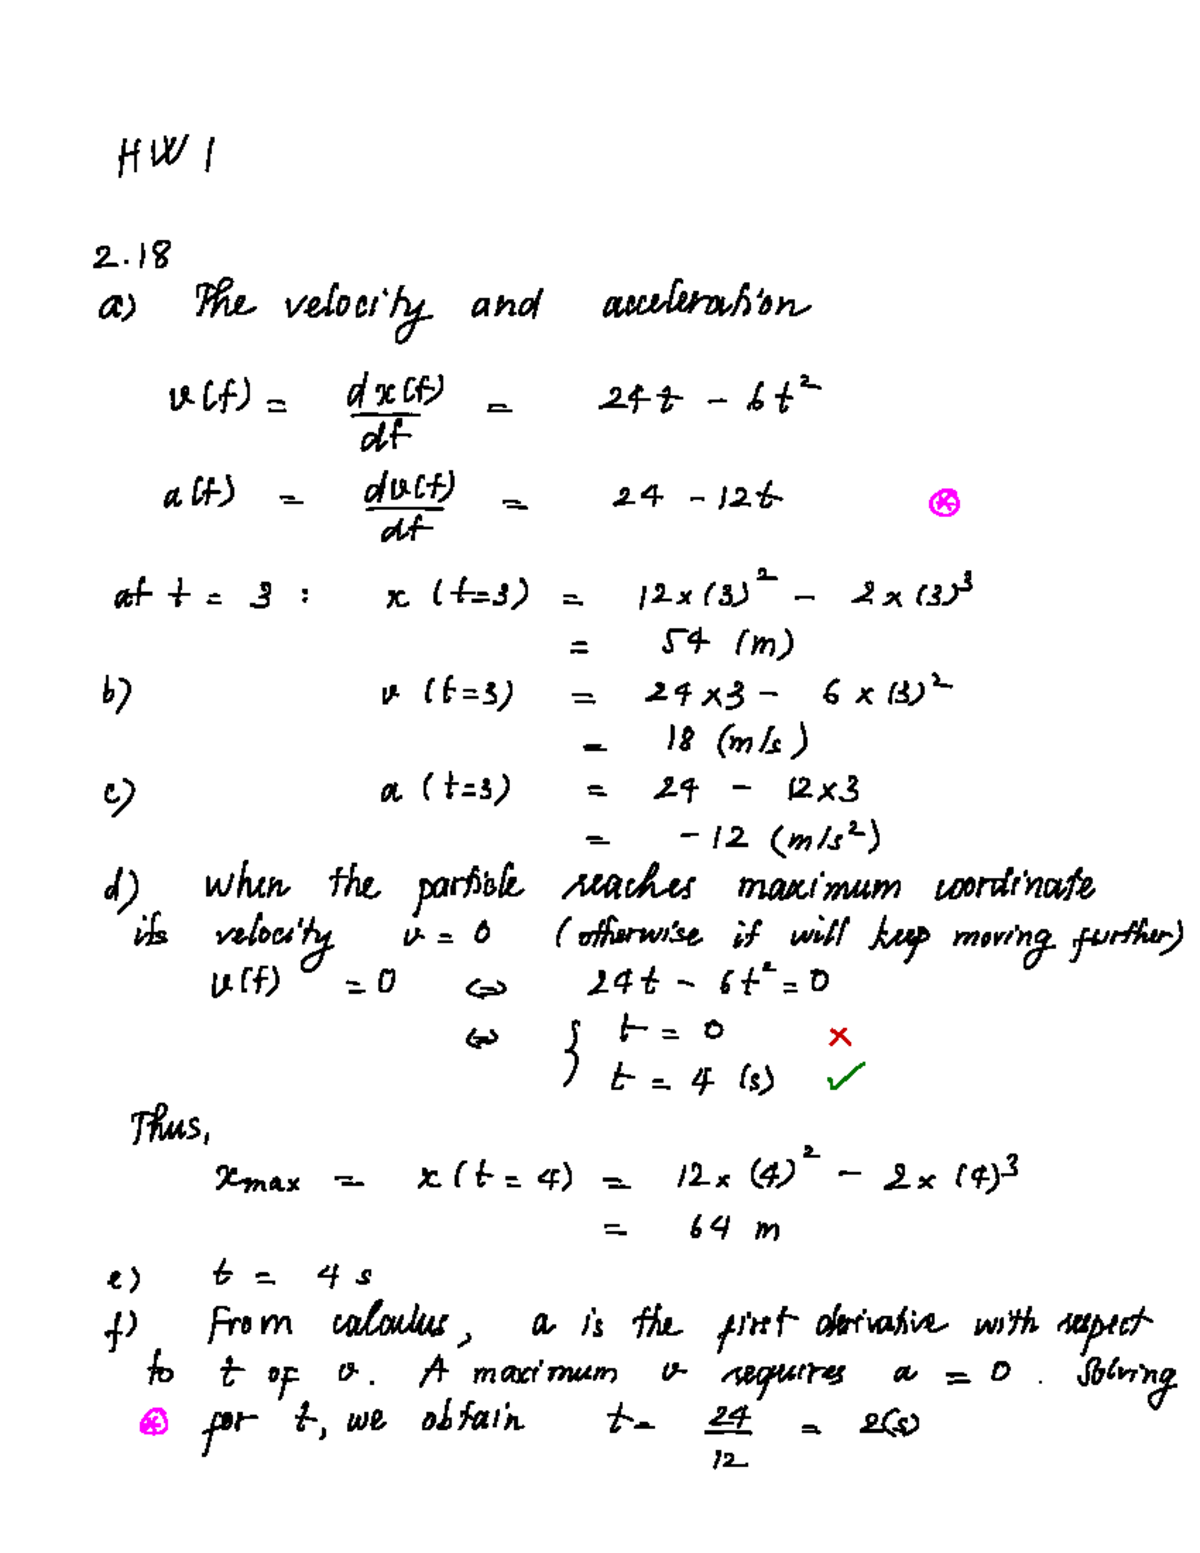 HW 1
2.18
a) The velocity and acceleration
v(t) = dx(t)/dt = 24t - 6t²
a(t) = dv(t)/dt = 24 - 12t ⊛
at t = 3 : x (t=3) = 12×(3)² - 2×(3)³
= 54 (m)
b) v (t=3) = 24×3 - 6×(3)²
= 18 (m/s)
c) a (t=3) = 24 - 12×3
= -12 (m/s²)
d) When the particle reaches maximum coordinate
its velocity v = 0 (otherwise it will keep moving further)
v(t) = 0 ⇔ 24t - 6t² = 0
⇔ { t = 0 ×
t = 4 (s) ✓
Thus,
xmax = x(t = 4) = 12×(4)² - 2×(4)³
= 64 m
e) t = 4 s
f) From calculus, a is the first derivative with respect
to t of v. A maximum v requires a = 0. Solving
⊛ for t, we obtain t = 24/12 = 2(s)